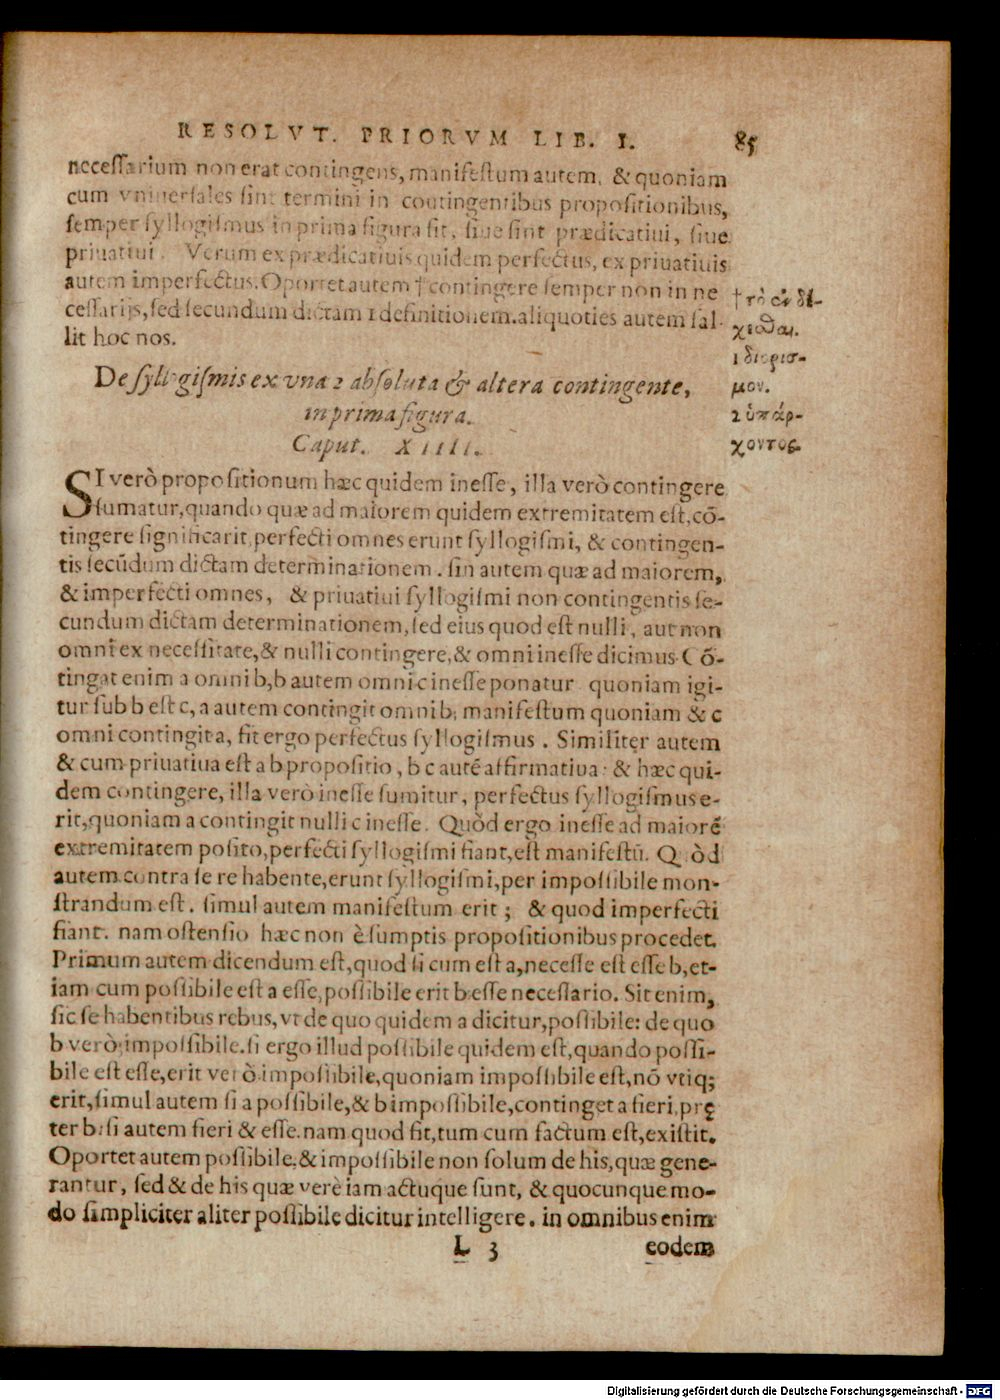 RESOLVT. PRIORVM LIB. I. 85
necessarium non erat contingens, manifestum autem, & quoniam
cum vniuersales sint termini in contingentibus propositionibus,
semper syllogismus in prima figura fit, siue sint prædicatiui, siue
priuatiui. Verum ex prædicatiuis quidem perfectus, ex priuatiuis
autem imperfectus. Oportet autem † contingere semper non in ne
cessarijs, sed secundum dictam 1 definitionem. aliquoties autem fal-
lit hoc nos.
† τὸ ἐνδέ-
χεσθαι.
1 διορισ-
μον.
2 ὑπάρ-
χοντος.
De syllogismis ex vna 2 absoluta & altera contingente,
in prima figura.
Caput. XIIII.
SI verò propositionum hæc quidem inesse, illa verò contingere
sumatur, quando quæ ad maiorem quidem extremitatem est, cō-
tingere significarit, perfecti omnes erunt syllogismi, & contingen-
tis secūdum dictam determinationem. sin autem quæ ad maiorem,
& imperfecti omnes, & priuatiui syllogismi non contingentis se-
cundum dictam determinationem, sed eius quod est nulli, aut non
omni ex necessitate, & nulli contingere, & omni inesse dicimus. Cō-
tingat enim a omni b, b autem omni c inesse ponatur. quoniam igi-
tur sub b est c, a autem contingit omni b, manifestum quoniam & c
omni contingit a, fit ergo perfectus syllogismus. Similiter autem
& cum priuatiua est a b propositio, b c autē affirmatiua: & hæc qui-
dem contingere, illa verò inesse sumitur, perfectus syllogismus e-
rit, quoniam a contingit nulli c inesse. Quòd ergo inesse ad maiorē
extremitatem posito, perfecti syllogismi fiant, est manifestū. Quòd
autem contra se re habente, erunt syllogismi, per impossibile mon-
strandum est. simul autem manifestum erit; & quod imperfecti
fiant. nam ostensio hæc non è sumptis propositionibus procedet.
Primum autem dicendum est, quod si cum est a, necesse est esse b, et-
iam cum possibile est a esse, possibile erit b esse necessario. Sit enim,
sic se habentibus rebus, vt de quo quidem a dicitur, possibile: de quo
b verò, impossibile. si ergo illud possibile quidem est, quando possi-
bile est esse, erit verò impossibile, quoniam impossibile est, nō vtiq;
erit, simul autem si a possibile, & b impossibile, continget a fieri, prę
ter b: si autem fieri & esse. nam quod fit, tum cum factum est, existit.
Oportet autem possibile, & impossibile non solum de his, quæ gene-
rantur, sed & de his quæ verè iam actuque sunt, & quocunque mo-
do simpliciter aliter possibile dicitur intelligere. in omnibus enim
L 3 eodem
Digitalisierung gefördert durch die Deutsche Forschungsgemeinschaft - DFG